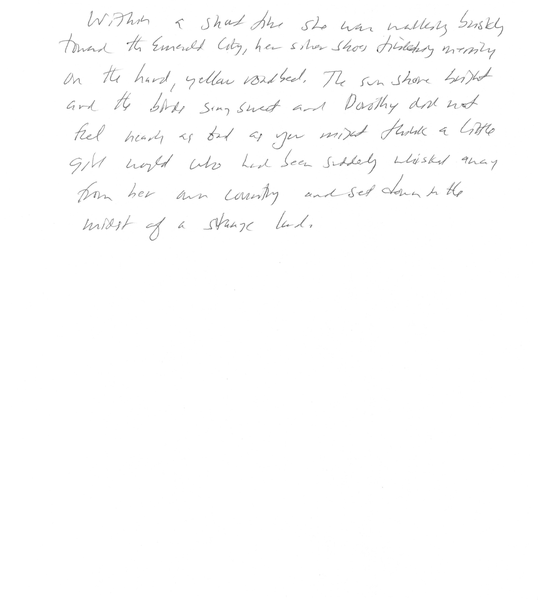 Within a short time she was walking briskly
toward the Emerald City, her silver shoes tinkling merrily
on the hard, yellow roadbed. The sun shone bright
and the birds sang sweet and Dorothy did not
feel nearly as bad as you might think a little
girl would who had been suddenly whisked away
from her own country and set down in the
midst of a strange land.